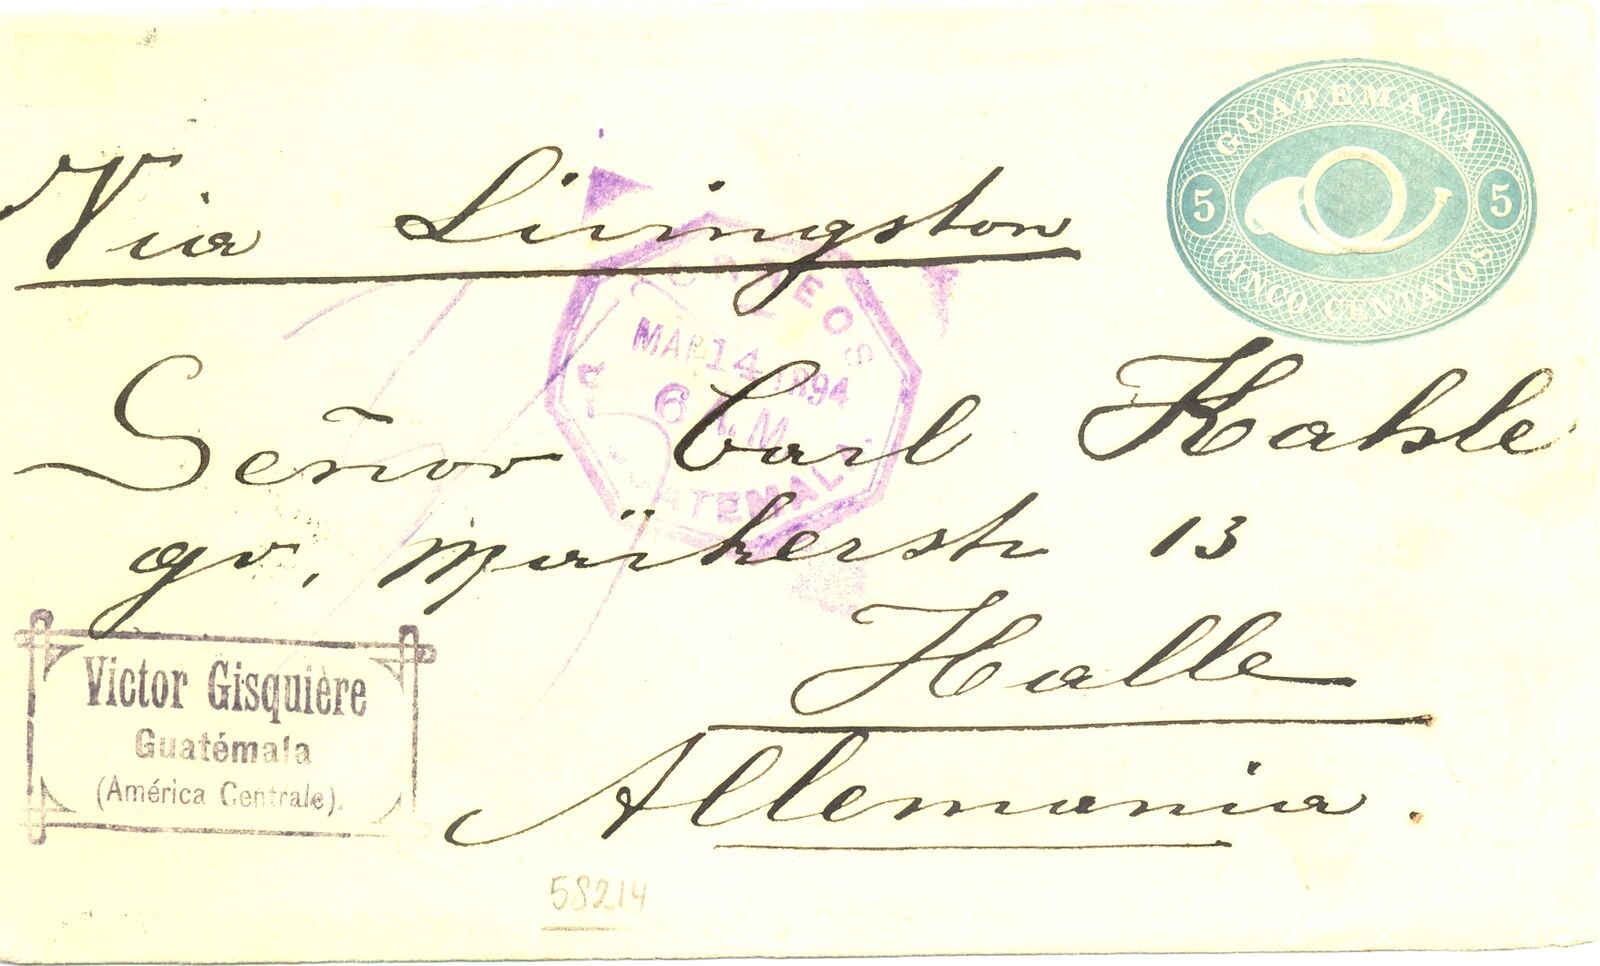 GUATEMALA
5 5
CINCO CENTAVOS
Via Livingston
CORREOS
MAR 14 1894
6 A.M.
GUATEMALA
Señor Carl Kahle
gr, Märkerstr 13
Halle
Allemania.
Victor Gisquière
Guatémala
(América Centrale).
58214